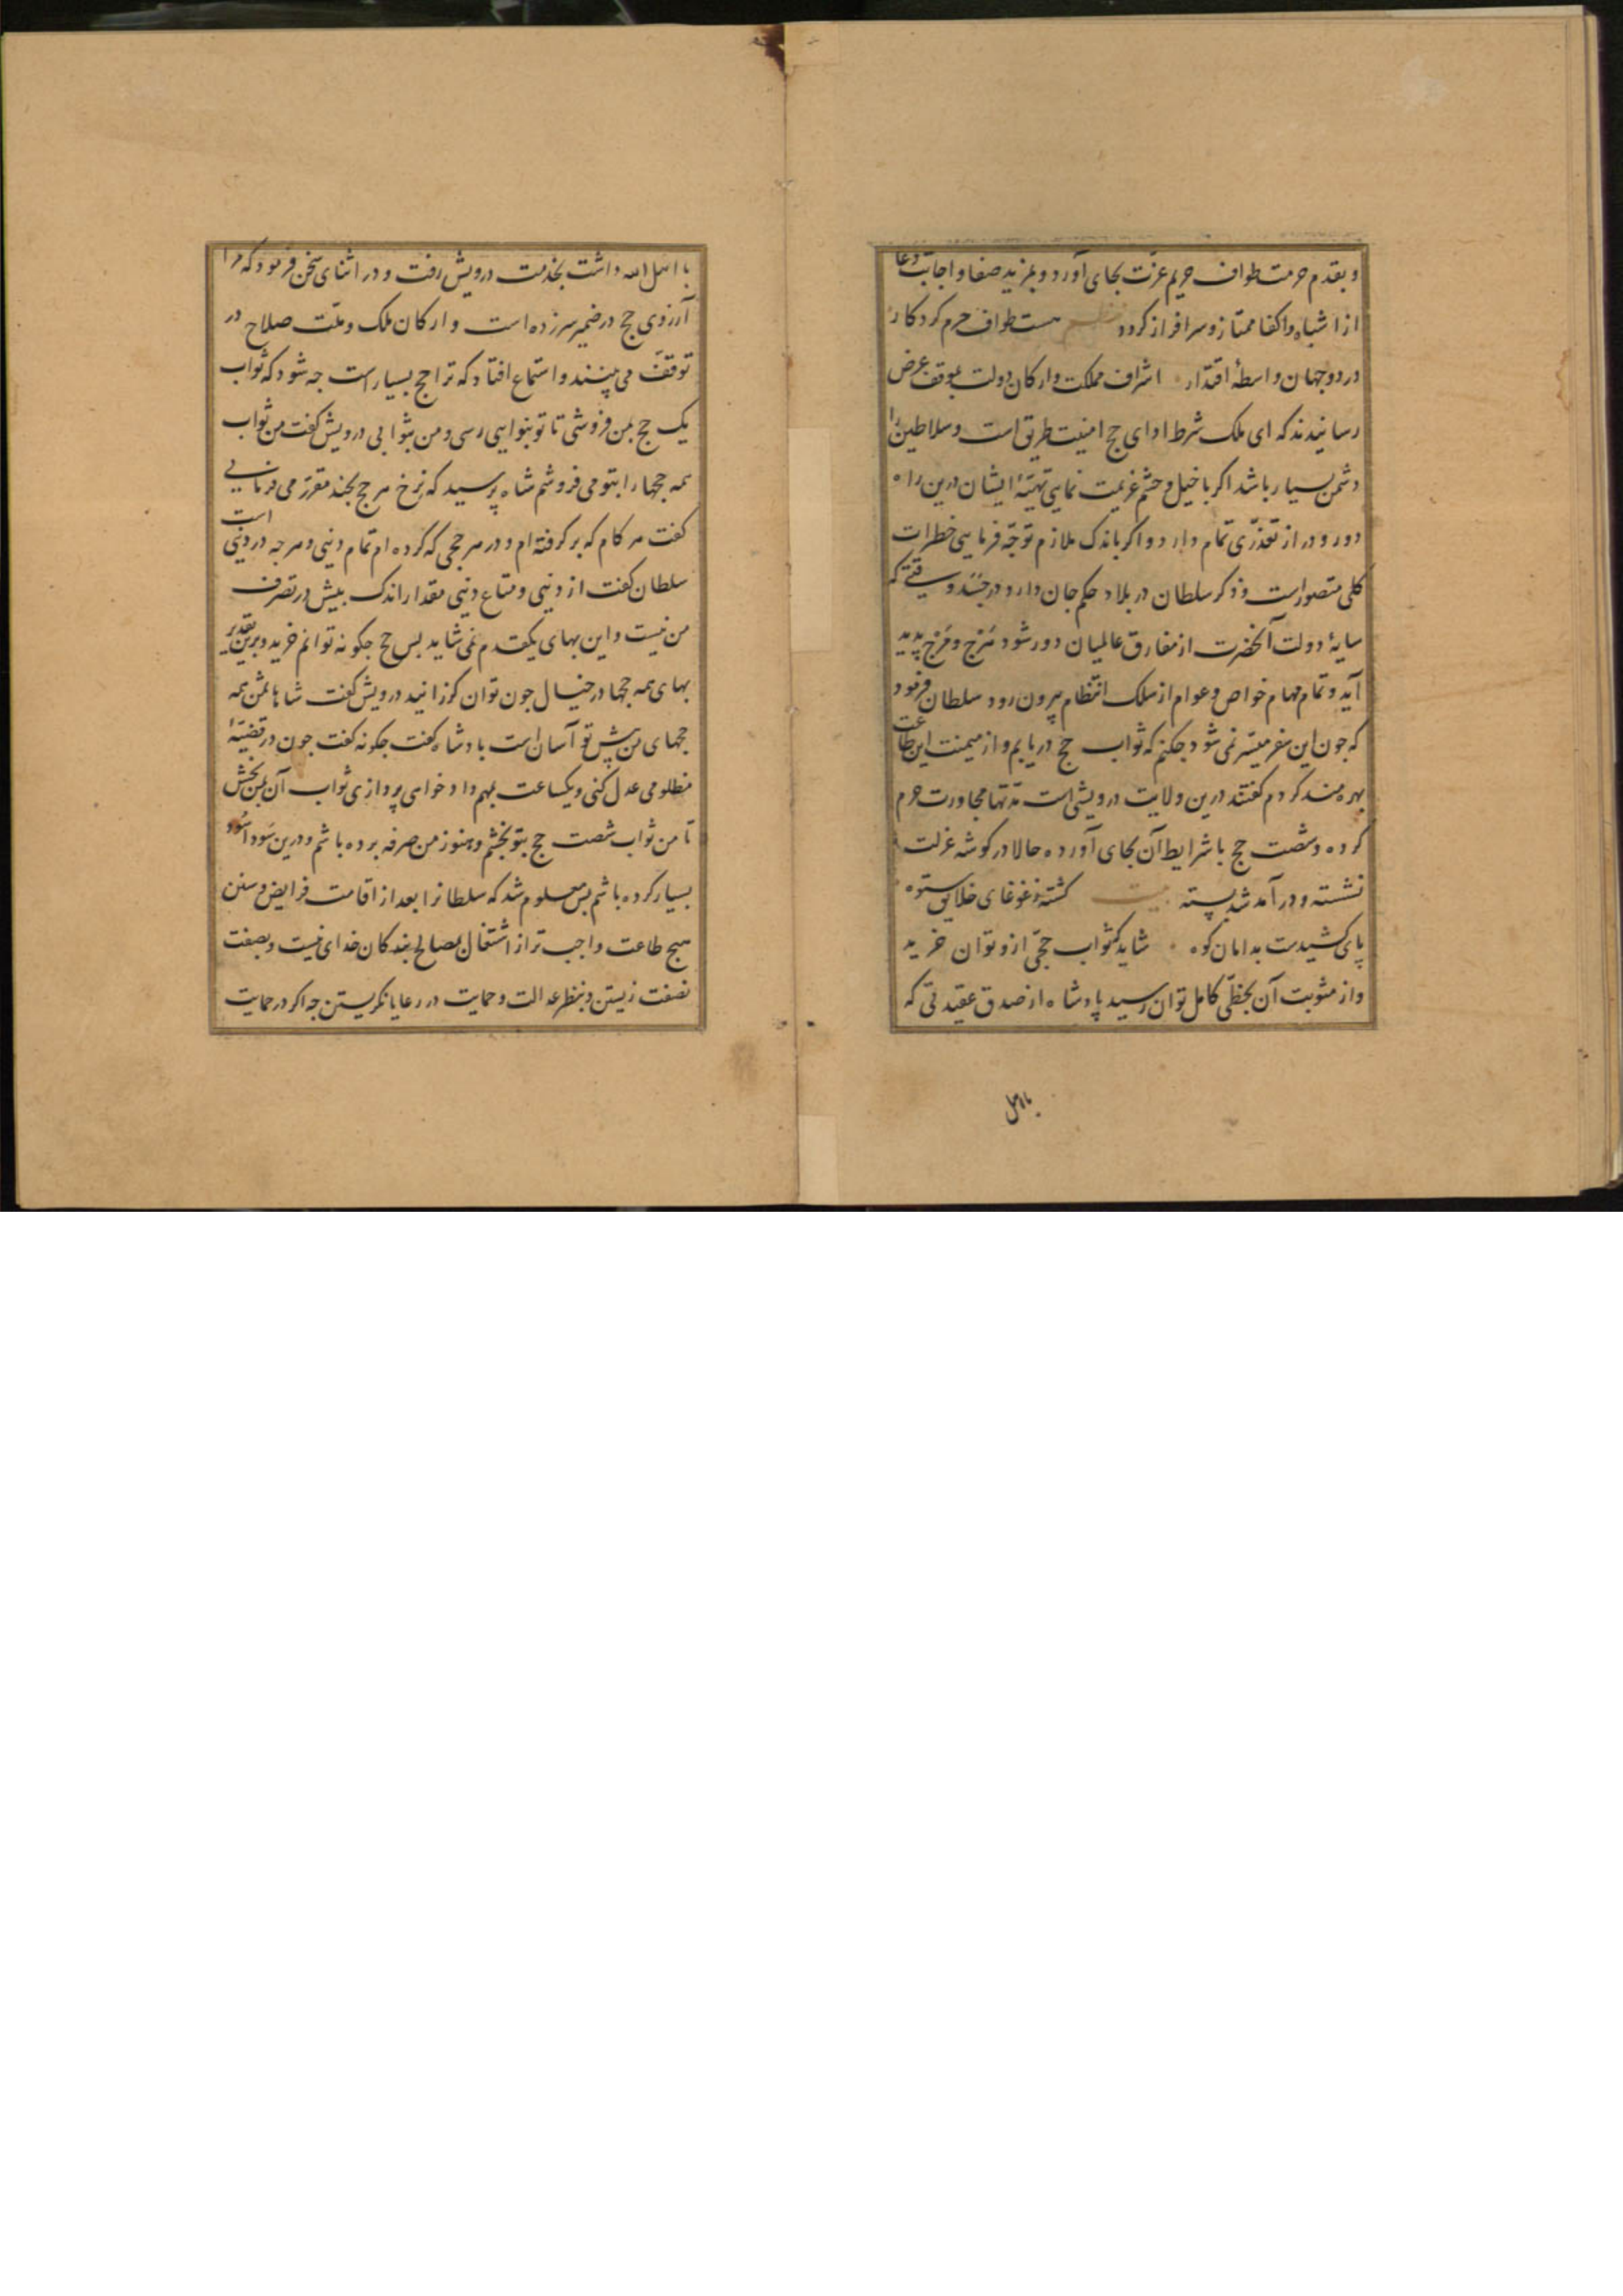 و بقدم حرمت طواف حریم عزّت بجای آورد و بمزید صفا و اجابت دعا
از اشباه و اکفا ممتاز و سرافراز کردد نظم هست طواف حرم کردکار
در دو جهان واسطهٔ اقتدار اشراف مملکت و ارکان دولت بموقف عرض
رسانیدند که ای ملک شرط ادای حج امنیت طریق است و سلاطین را
دشمن بسیار باشد اکر با خیل و حشم عزیمت نمایی تهیّهٔ ایشان درین راه
دور و دراز تعذّری تمام دارد و اکر باندک ملازم توجّه فرمایی خطرات
کلی متصور است و ذکر سلطان در بلاد حکم جان دارد در جسد وقتی که
سایهٔ دولت آنحضرت از مفارق عالمیان دور شود هَرْج و مَرْج پدید
آید و تمام مهام خواص و عوام از سلک انتظام بیرون رود سلطان فرمود
که جون این سفر میسّر نمی شود جکنم که ثواب حج دریابم و از میمنت این طاعت
بهره مند کردم کفتند درین ولایت درویشی است مدّتها مجاورت حرم
کرده و شصت حج با شرایط آن بجای آورده حالا در کوشه عزلت
نشسته و در آمد شد بسته بیت کشته ز غوغای خلایق ستوه
پای کشیدست بدامان کوه شاید که ثواب حجّی ازو توان خرید
و از مثوبت آن بحظّی کامل توان رسید پادشاه از صدق عقیدتی که
با اهل
با اهل الله داشت بخدمت درویش رفت و در اثنای سخن فرمود که مرا
آرزوی حج در ضمیر سر زده است و ارکان ملک و ملّت صلاح در
توقف می بینند و استماع افتاد که ترا حج بسیار است جه شود که ثواب
یک حج بمن فروشی تا تو بنوایی رسی و من بثوابی درویش کفت من ثواب
همه حجها را بتو می فروشم شاه پرسید که نرخ هر حج بجند مقرر می فرمایی
کفت هر کام که بر کرفته ام و در هر حجی که کرده ام تمام دنیی و هر جه در دنیی است
سلطان کفت از دنیی و متاع دنیی مقدار اندک بیش در تصرف
من نیست و این بهای یکقدم نمی شاید بس حج جکونه توانم خرید و برین تقدیر
بهای همه حجها در خیال جون توان کوزانید درویش کفت شاها ثمن همه
حجهای من پیش تو آسان است بادشاه کفت جکونه کفت جون در قضیّهٔ
مظلومی عدل کنی و یکساعت بمهم داد خواهی پردازی ثواب آن بمن بخش
تا من ثواب شصت حج بتو بخشم و هنوز من صرفه برده باشم و درین سودا سُود
بسیار کرده باشم بس معلوم شد که سلطانرا بعد از اقامت فرایض و سنن
هیج طاعت واجب تر از اشتغال بمصالح بندکان خدای نیست و بصفت
نصفت زیستن و بنظر عدالت و حمایت در رعایا نکریستن جه اکر در حمایت